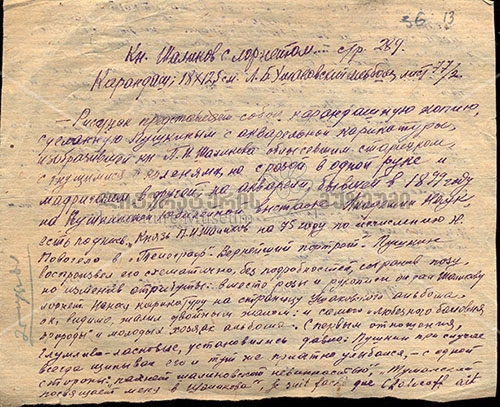 36 13
Кн. Шаликов с лорнетом... стр. 289.
Карандаш; 18×12,5 см. Л.Б. Ушаковский альбом, лист 77/2
— Рисунок представляет собой карандашную копию,
сделанную Пушкиным с акварельной карикатуры,
изобразившей кн. П.И. Шаликова облысевшим старичком,
с гнущимися коленями, на розой в одной руке и
мадригалом в другой; на акварели, бывшей в 1899 году
на Пушкинской юбилейной выставке Академии Наук
есть подпись: "Князь П.И. Шаликов на 95 году по исчислению Н.
Полевого в "Телеграфе". Вернейший портрет". Пушкин
воспроизвел его схематично, без подробностей, сохранив позу,
но изменив атрибуты: вместо розы и рукописи он дал Шаликову
лорнет. Нанося карикатуру на страницу Ушаковского альбома,
он, видимо, жалил двойным жалом: и самого "любезного баловня
природы" и молодых хозяек альбома. С первым отношения,
глумливо-ласковые, установились давно: Пушкин при случае
всегда щипывал его и тут же приятно улыбался, — с одной
стороны: пахнет шаликовской невинностью", "Туманский
посвящает меня в Шаликова" "je suis fâché que Chalikoff ait